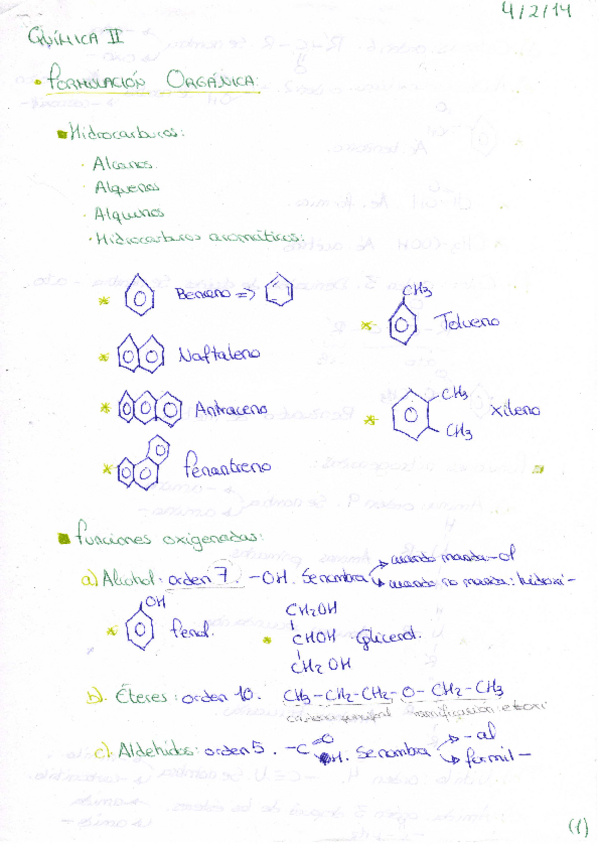 4/2/14
QUÍMICA II
• FORMULACIÓN ORGÁNICA:
Hidrocarburos:
· Alcanos.
· Alquenos
· Alquinos
· Hidrocarburos aromáticos:
* Benceno =>
CH3
* Tolueno
* Naftaleno
* Antraceno
* CH3 Xileno
CH3
* Fenantreno
Funciones oxigenadas:
a) Alcohol: orden 7. -OH. Se nombra cuando manda -ol
cuando no manda: hidroxi-
OH
* Fenol.
CH2OH
* CHOH · Glicerol.
CH2OH
b). Éteres: orden 10. CH3-CH2-CH2-O-CH2-CH3
cadena principal ramificación etoxi
c) Aldehidos: orden 5. -C O H. Se nombra -al
formil-
(1)